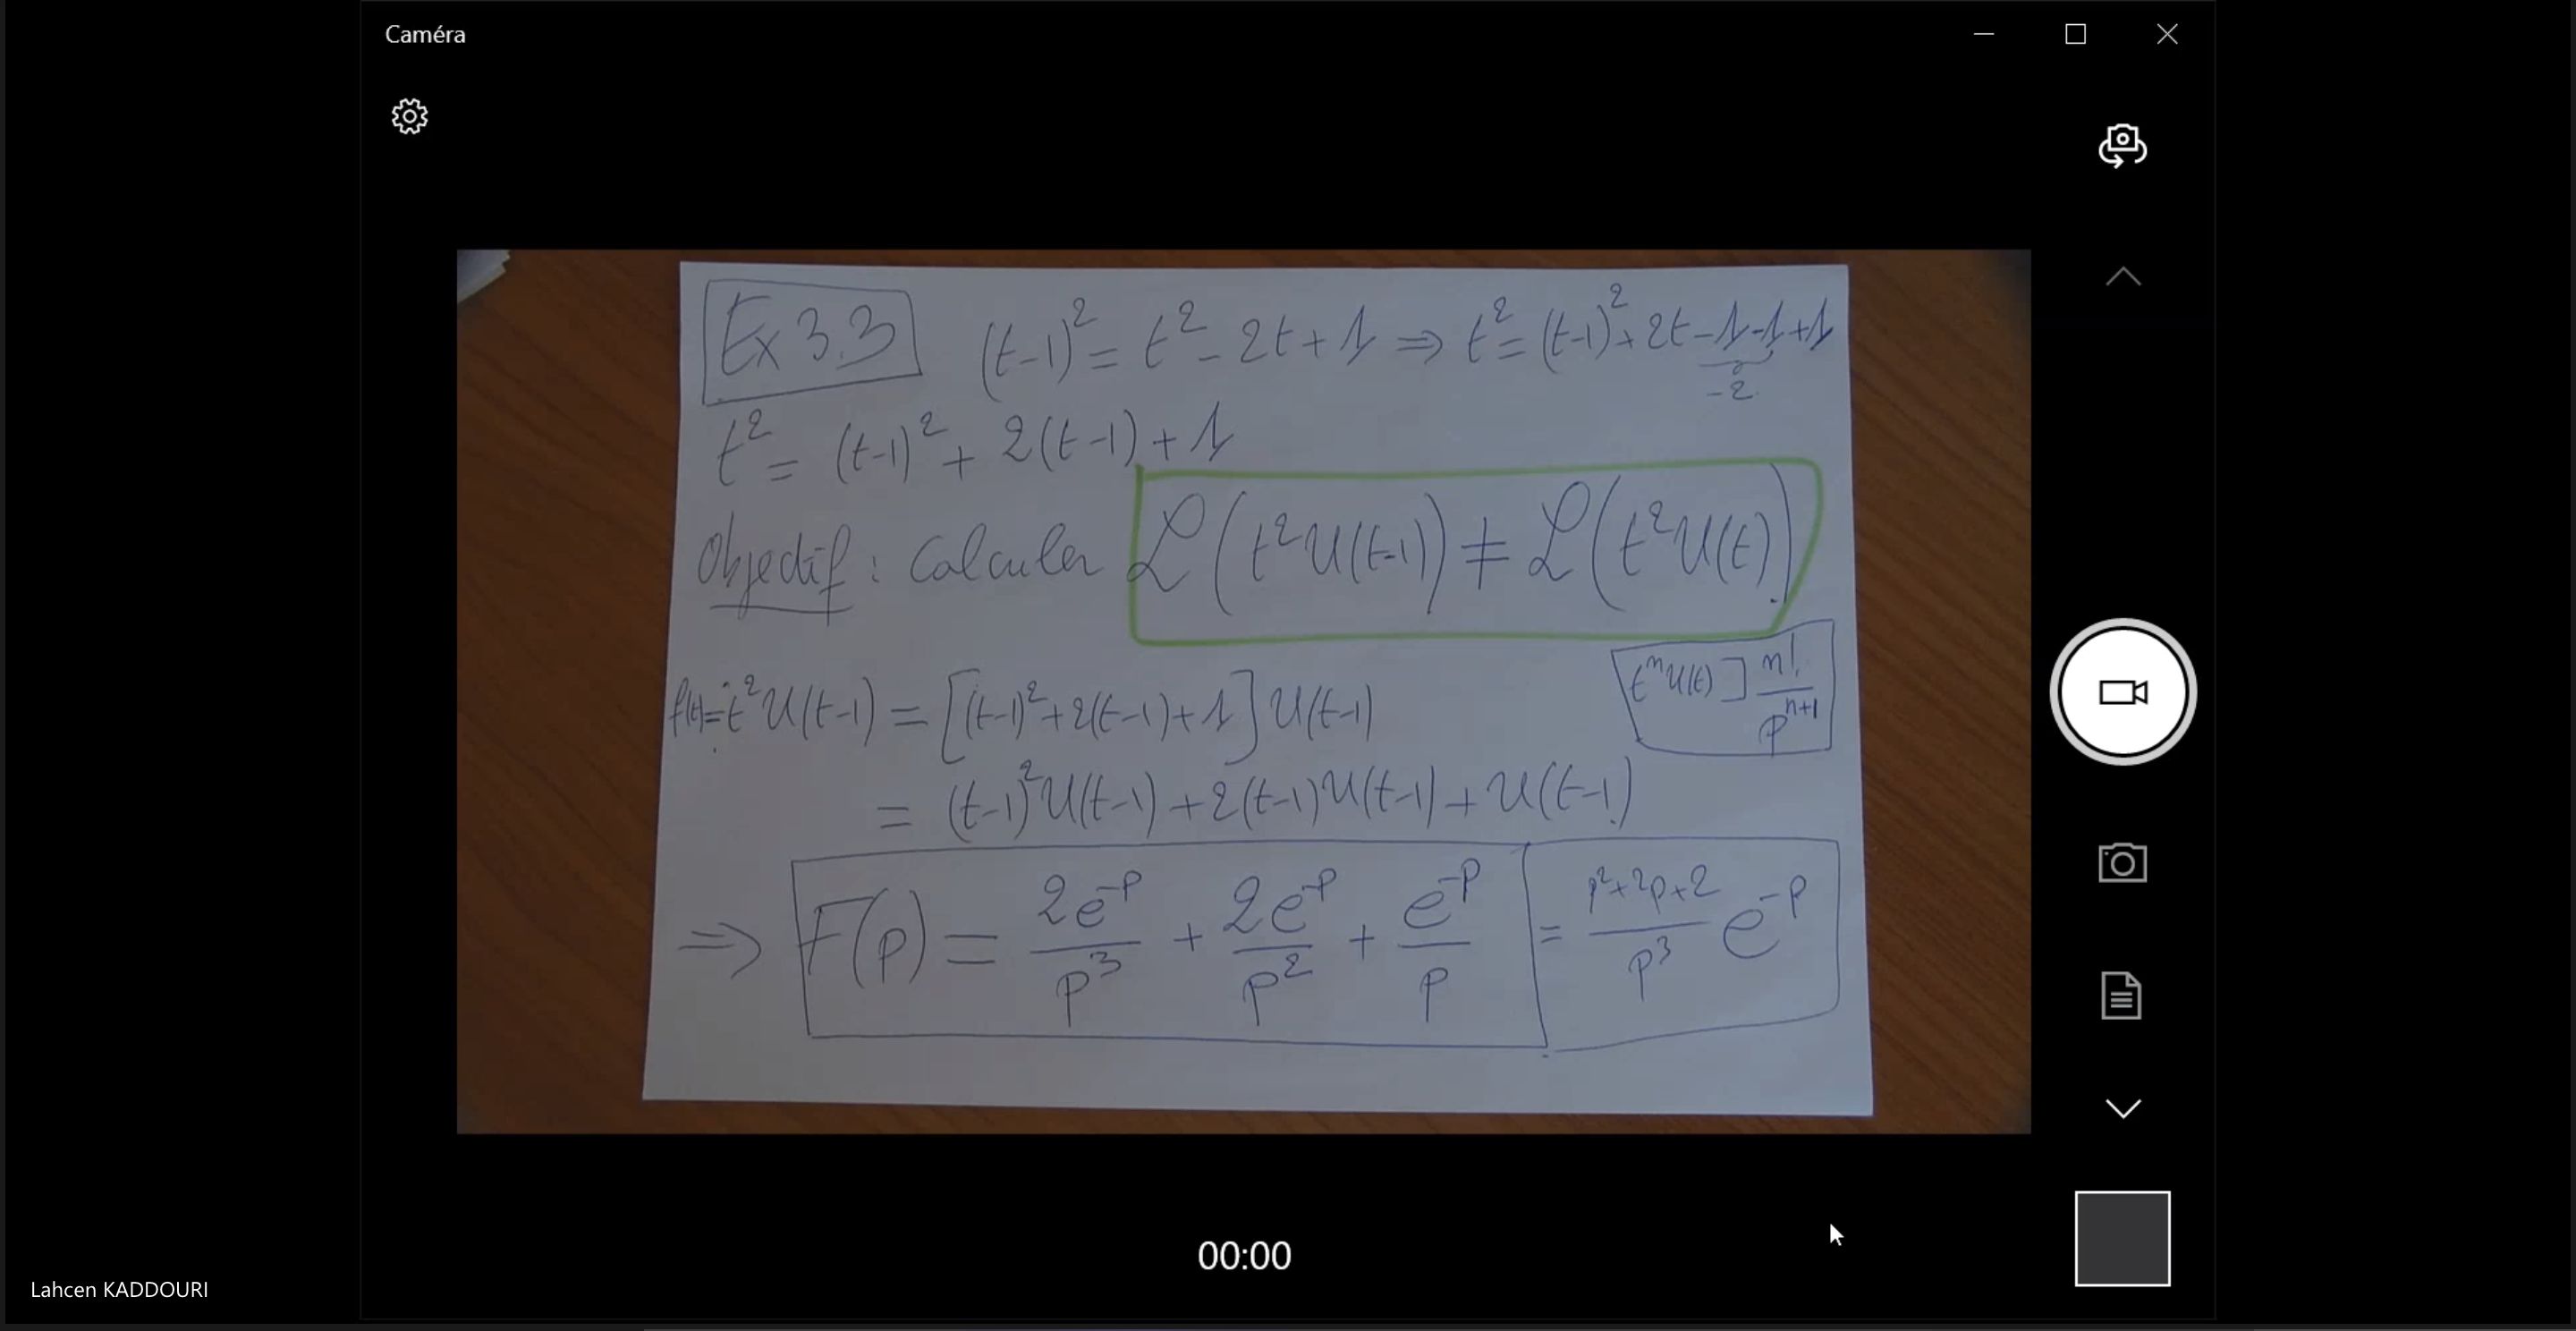 Caméra
Ex 3.3 (t-1)² = t² - 2t + 1 ⇒ t² = (t-1)² + 2t - 1 - 1 + 1
-2
t² = (t-1)² + 2(t-1) + 1
Objectif : Calculer ℒ(t²U(t-1)) ≠ ℒ(t²U(t))
tⁿU(t) ] n!/pⁿ⁺¹
f(t) = t²U(t-1) = [(t-1)² + 2(t-1) + 1] U(t-1)
= (t-1)²U(t-1) + 2(t-1)U(t-1) + U(t-1)
⇒ F(p) = 2e⁻ᵖ/p³ + 2e⁻ᵖ/p² + e⁻ᵖ/p = p²+2p+2/p³ e⁻ᵖ
00:00
Lahcen KADDOURI